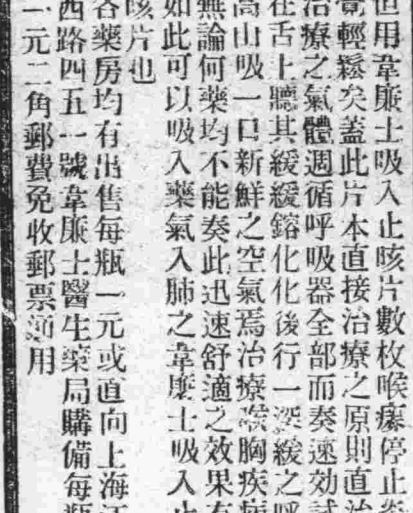 但用韋廉士吸入止咳片數枚喉癢停止炎
覺輕鬆矣蓋此片本直接治療之原則直治
治療之氣體週循呼吸器全部而奏速效試
在舌上聽其緩緩鎔化化後行一深緩之呼
高山吸一口新鮮之空氣焉治療喉胸疾病
無論何藥均不能奏此迅速舒適之效果有
如此可以吸入藥氣入肺之韋廉士吸入止
咳片也
各藥房均有出售每瓶一元或直向上海江
西路四五一號韋廉士醫生藥局購備每瓶
一元二角郵費免收郵票用